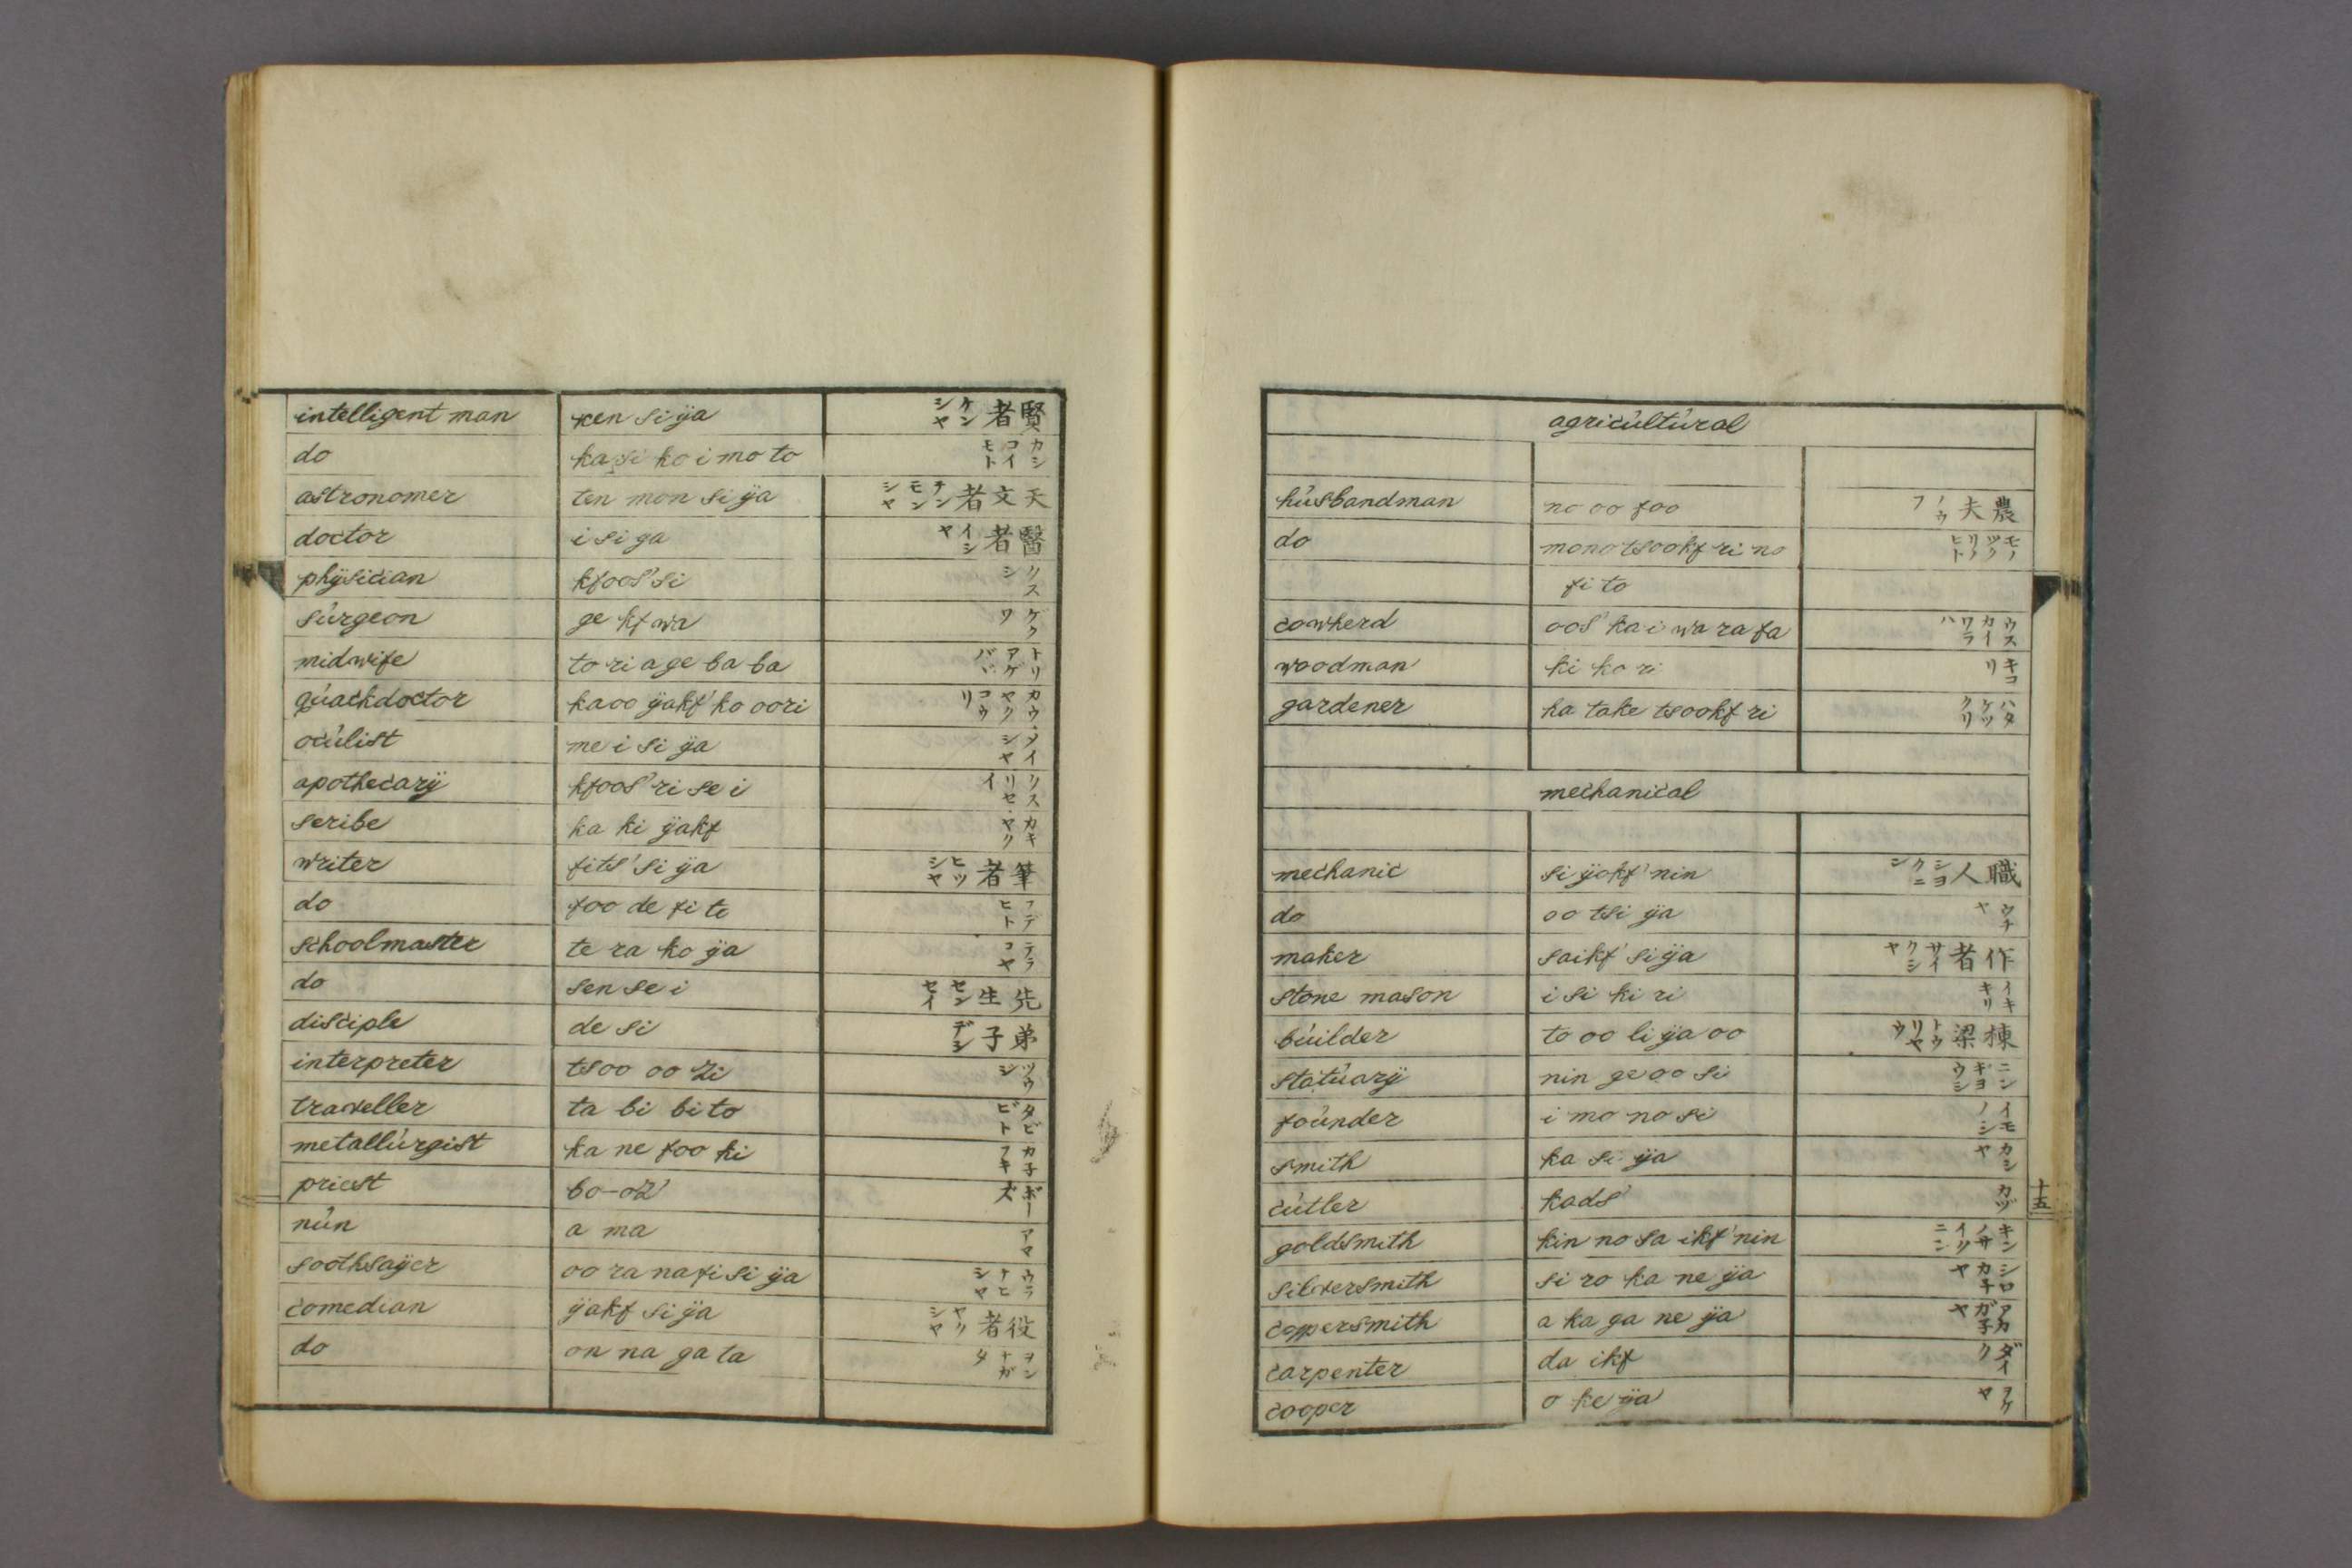 intelligent man ken si ÿa 賢者 ケンシヤ
do ka si ko i mo to カシコイモト
astronomer ten mon si ÿa 天文者 テンモンシヤ
doctor i si ga 醫者 イシヤ
phÿsician kfoos'si クスシ
súrgeon ge kf wa ゲクワ
midwife to ri a ge ba ba トリアゲバヾ
qúackdoctor ka oo ÿakf' ko oori カウヤクコウリ
ocúlist me i si ÿa メイシヤ
apothecarÿ kfoos' ri se i クスリセイ
scribe ka ki ÿakf カキヤク
writer fits' si ÿa 筆者 ヒツシヤ
do foo de fi to フデヒト
schoolmaster te ra ko ÿa テラコヤ
do sen se i 先生 センセイ
disciple de si 弟子 デシ
interpreter tsoo oo zi ツウシ
traveller ta bi bi to タビビト
metallúrgist ka ne foo ki カ子フキ
priest bo-oz' ボーズ
nún a ma アマ
soothsaÿer oo ra na fi si ÿa ウラナヒシヤ
comedian ÿakf si ÿa 役者 ヤクシヤ
do on na ga ta ヲンナガタ
agricúltúral
húsbandman no oo foo 農夫 ノウフ
do mono tsookf ri no モノツクリノヒト
fi to
cowherd oos' ka i wa ra fa ウスカイワラハ
woodman ki ko ri キコリ
gardener ha take tsookf ri ハタケツクリ
mechanical
mechanic si ÿokf' nin 職人 シヨクニン
do oo tsi ÿa ウチヤ
maker saikf' si ÿa 作者 サイクシヤ
stone mason i si ki ri イキキリ
búilder to oo li ÿa oo 棟梁 トウリヤウ
statúarÿ nin ge oo si ニンギヨウシ
foúnder i mo no si イモノシ
smith ka si ÿa カシヤ
cútler kads' カヅ
goldsmith kin no sa ikf' nin キンノサイクニン
silversmith si ro ka ne ÿa シロカ子ヤ
coppersmith a ka ga ne ÿa アカガ子ヤ
carpenter da ikf ダイク
cooper o ke ÿa ヲケヤ
十五